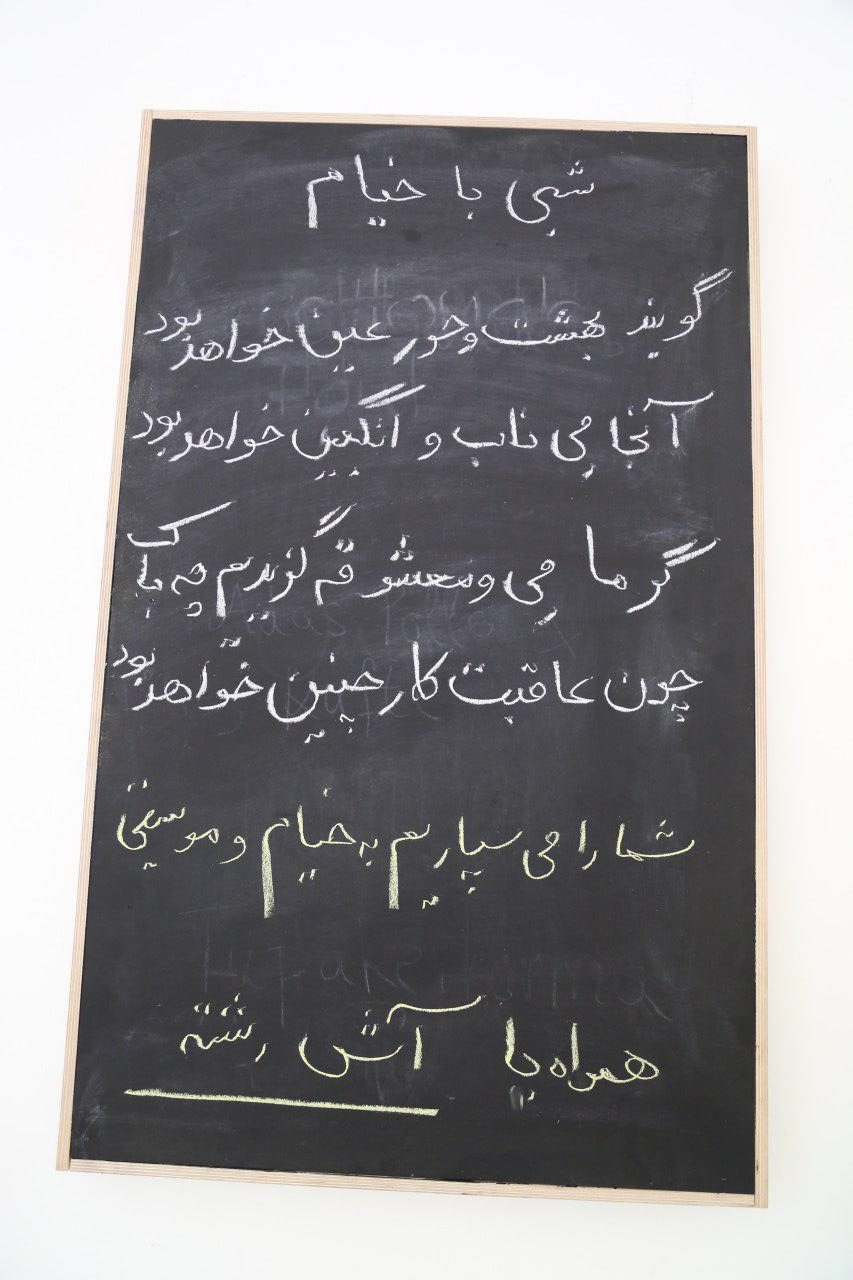 شبی با خیام
گویند بهشت و حور عین خواهد بود
آنجا می ناب و انگبین خواهد بود
گر ما می و معشوقه گزیدیم چه باک
چون عاقبت کار چنین خواهد بود
شما را می سپاریم به خیام و موسیقی
همراه با آش رشته